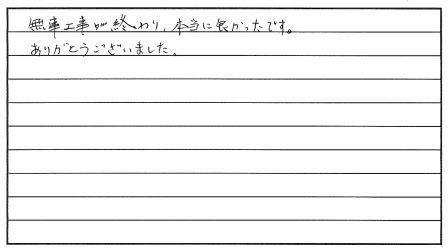 無事工事が終わり、本当に良かったです。
ありがとうございました。